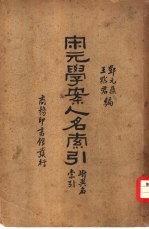 鄧元鼎
王默君
編
宋元學案人名索引
附異名
索引
商務印書館發行